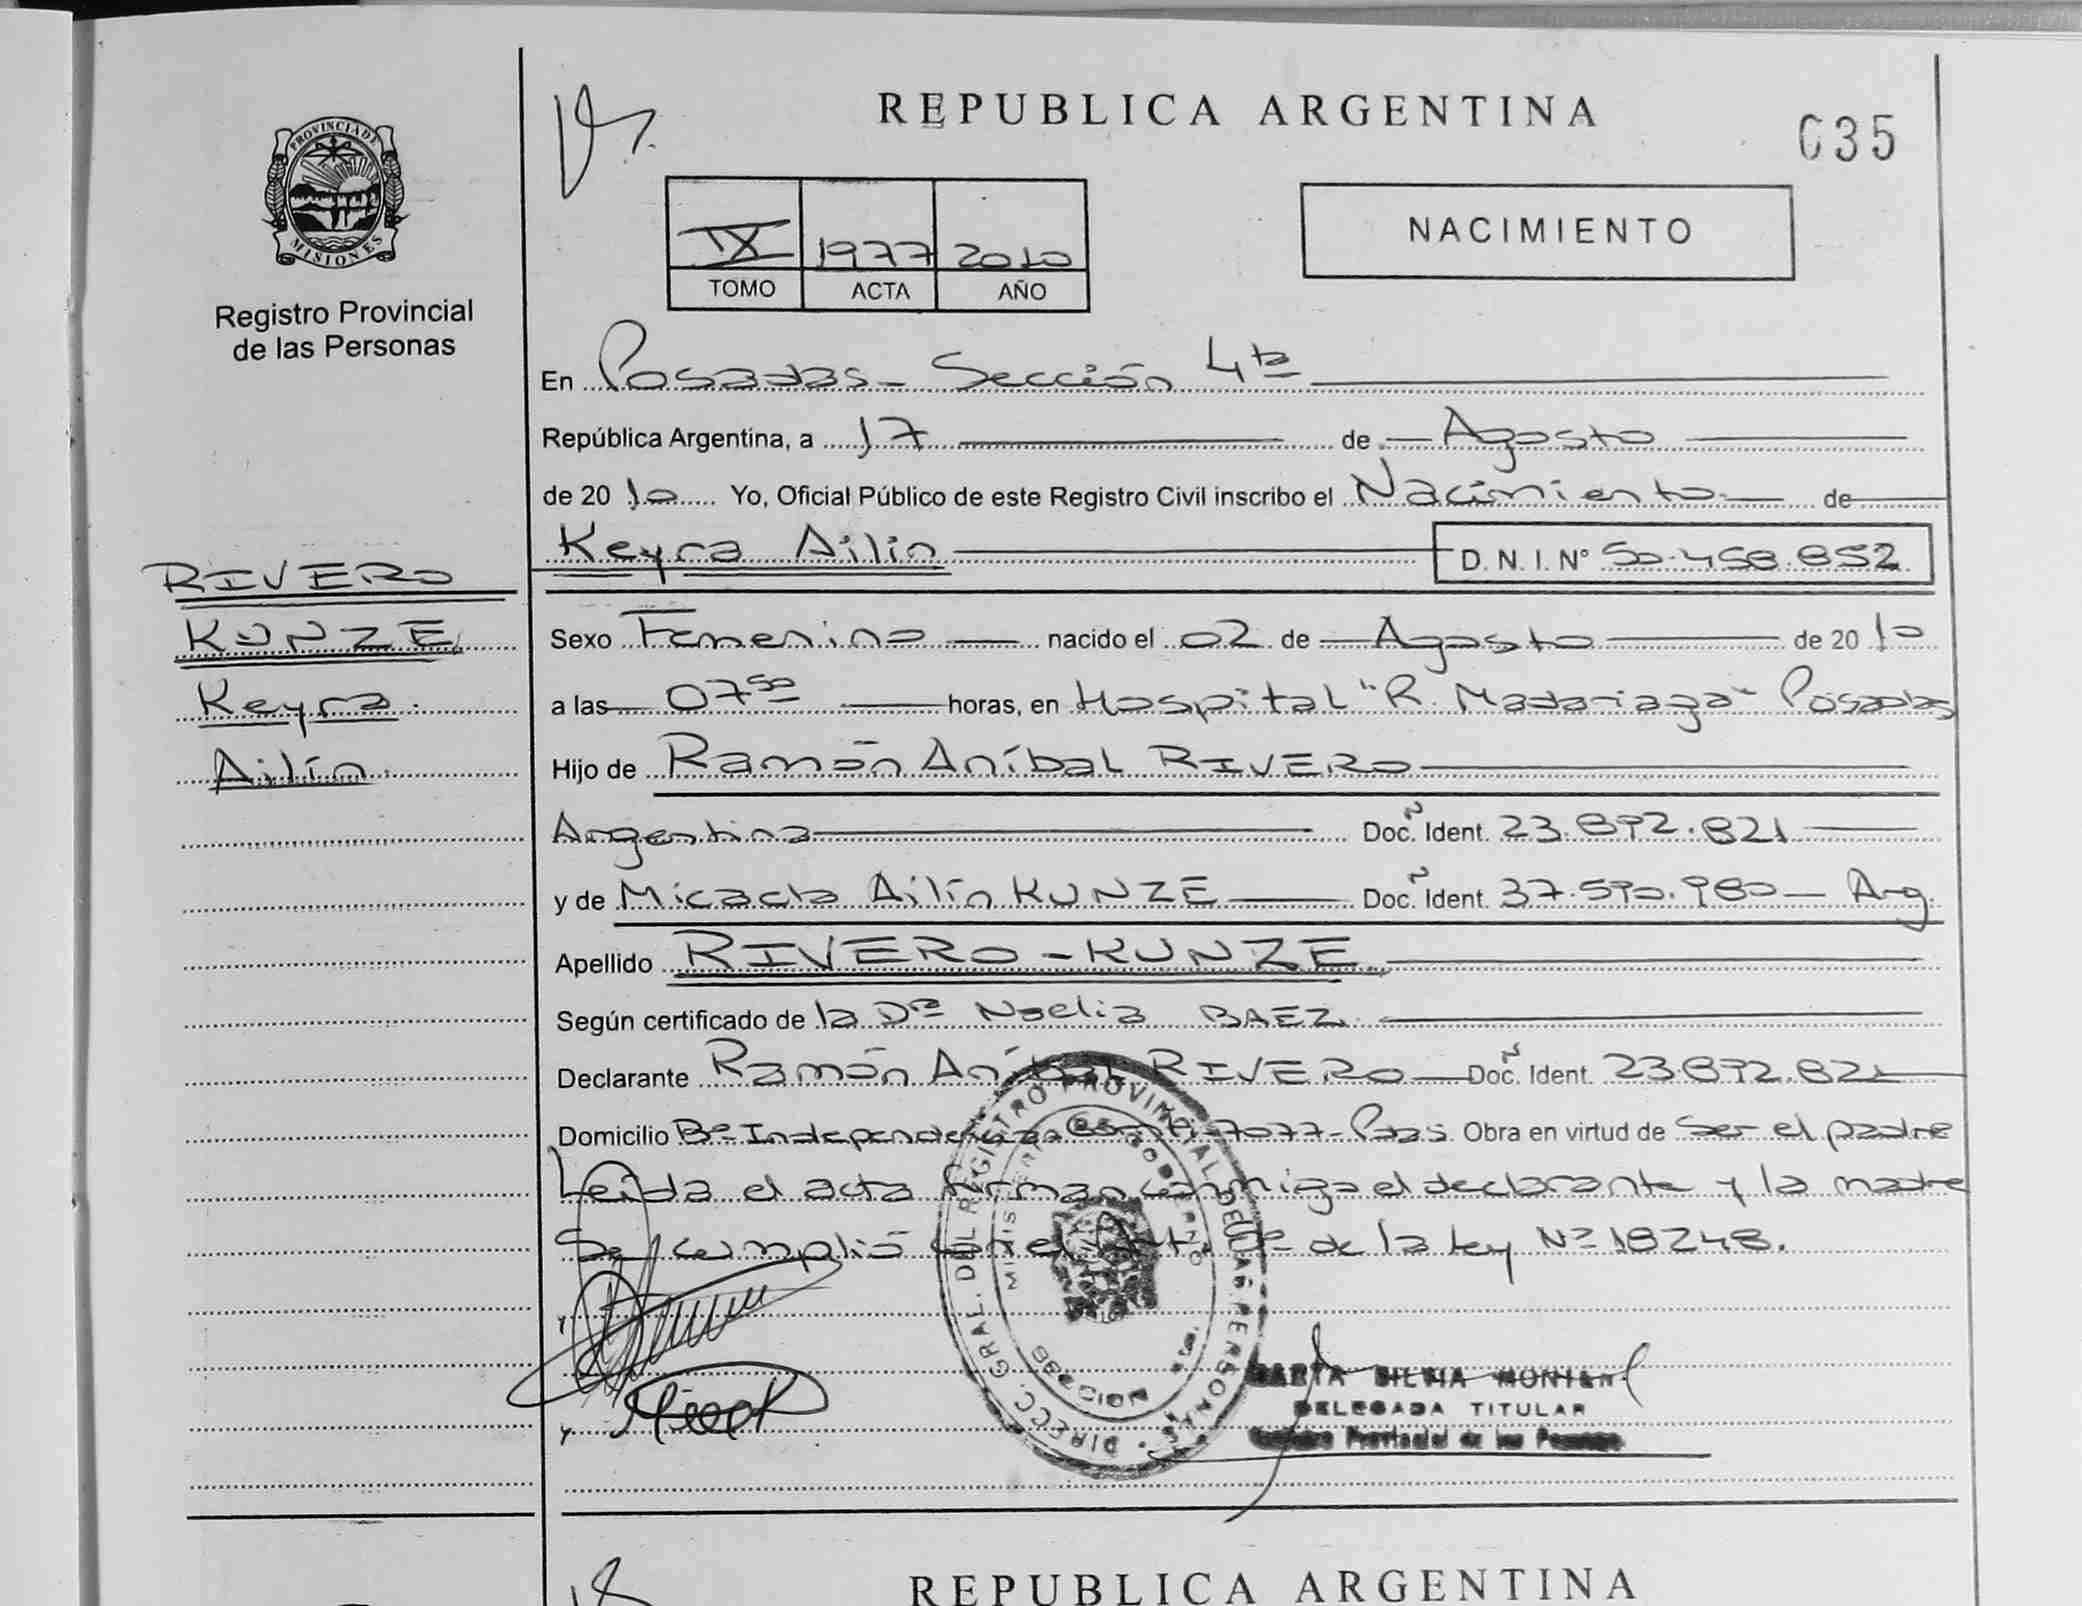 REPUBLICA ARGENTINA
035
PROVINCIA DE
MISIONES
Registro Provincial
de las Personas
IX 1977 2010
TOMO ACTA AÑO
NACIMIENTO
En Posadas - Sección 4ta
República Argentina, a 17 de Agosto
de 2010 Yo, Oficial Público de este Registro Civil inscribo el Nacimiento de
Keyra Ailín D.N.I. Nº 50.458.852
RIVERO
KUNZE
Keyra
Ailín
Sexo Femenino nacido el 02 de Agosto de 2010
a las 07 50 horas, en Hospital "R. Madariaga" Posadas
Hijo de Ramón Aníbal RIVERO
Argentina Doc. Nº Ident. 23.872.821
y de Micaela Ailín KUNZE Doc. Nº Ident. 37.590.980 - Arg.
Apellido RIVERO - KUNZE
Según certificado de la Dra Noelia BAEZ
Declarante Ramón Aníbal RIVERO Doc. Nº Ident.
Domicilio Bº Independencia 7077 - Pdas. Obra en virtud de ser el padre
Leída el acta firman conmigo el declarante y la madre
Se cumplió con el Art. de la ley Nº 18248.
DIRECC. GRAL. DEL REGISTRO PROVINCIAL DE LAS PERSONAS
MINISTERIO GOBIERNO
SECCION
DELEGADA TITULAR
Registro Provincial de las Personas
REPUBLICA ARGENTINA